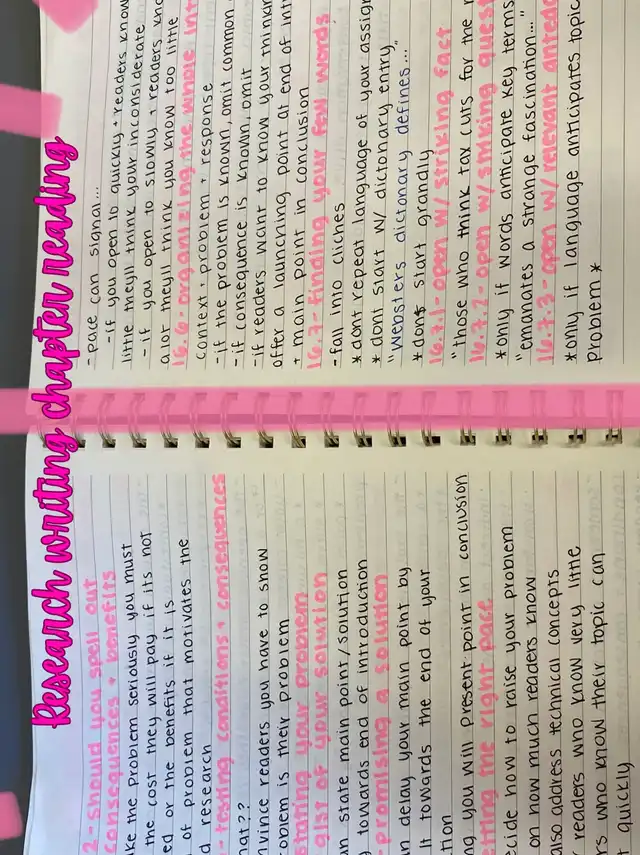 Research writing chapter reading
2-should you spell out
consequences + benefits
ke the problem seriously you must
the cost they will pay if its not
ed or the benefits if it is
of problem that motivates the
d research
- testing conditions + consequences
hat??
nvince readers you have to show
oblem is their problem
stating your problem
gist of your solution
n state main point/solution
towards end of introduction
promising a solution
n delay your main point by
it towards the end of your
tion
ng you will present point in conclusion
etting the right pace
cide how to raise your problem
on how much readers know
also address technical concepts
readers who know very little
rs who know their topic can
t quickly
-pace can signal...
-if you open to quickly + readers know
little theyll think your inconsiderate
-if you open to slowly + readers kno
a lot theyll think you know too little
16.6-organizing the whole int
context + problem + response
-if the problem is known, omit common
-if consequence is known, omit
-if readers want to know your thinkin
offer a launching point at end of int
+ main point in conclusion
16.7-finding your few words
-fall into cliches
*dont repeat language of your assign
*dont start w/ dictonary entry
"Websters dictonary defines...
*dont start grandly
16.7.1-open w/ striking fact
"Those who think tax cuts for the r
16.7.2-open w/ striking quest
*only if words anticipate key terms
"emanates a strange fascination..."
16.7.3-open w/ relevant anecdo
*only if language anticipates topic
problem*